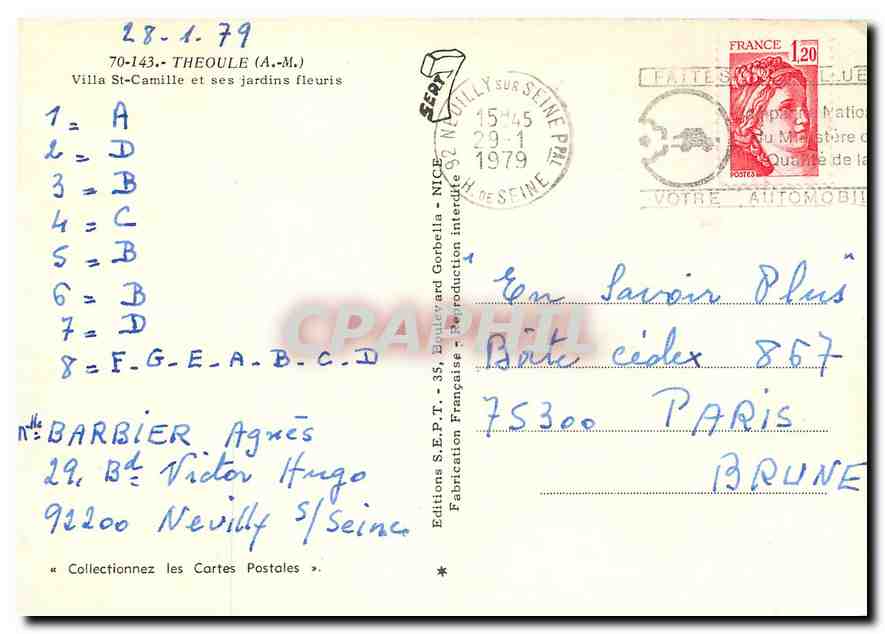 28-1.79
70-143.- THEOULE (A.-M.)
Villa St-Camille et ses jardins fleuris
1 = A
2 = D
3 = B
4 = C
5 = B
6 = B
7 = D
8 = F-G-E-A-B-C-D
Mlle BARBIER Agnès
29, Bd Victor Hugo
92200 Neuilly s/Seine
« Collectionnez les Cartes Postales ».
SEPT
Editions S.E.P.T. - 35, Boulevard Gorbella - NICE
Fabrication Française - Reproduction interdite
*
92 NEUILLY SUR SEINE PPAL
15H45
29-1
1979
H. DE SEINE
FRANCE 1,20
POSTES
FAITES
Natio
du Ministère d
Qualité de la
VOTRE AUTOMOBIL
"En Savoir Plus"
Boîte cédex 867
75300 PARIS
BRUNE
CPAPHIL